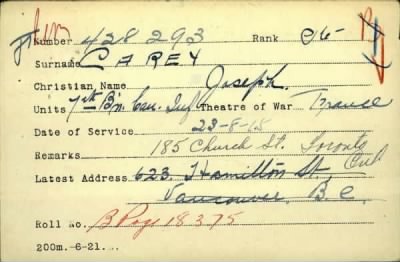 Number 428293 Rank Pte
Surname CAREY
Christian Name Joseph.
Units 7th Bn. Can. Inf. Theatre of War France
Date of Service 23-8-15
Remarks 185 Church St. Toronto
Latest Address 623 Hamilton St.
Vancouver, B.C.
Roll No. B Page 18375
200m.-6-21.